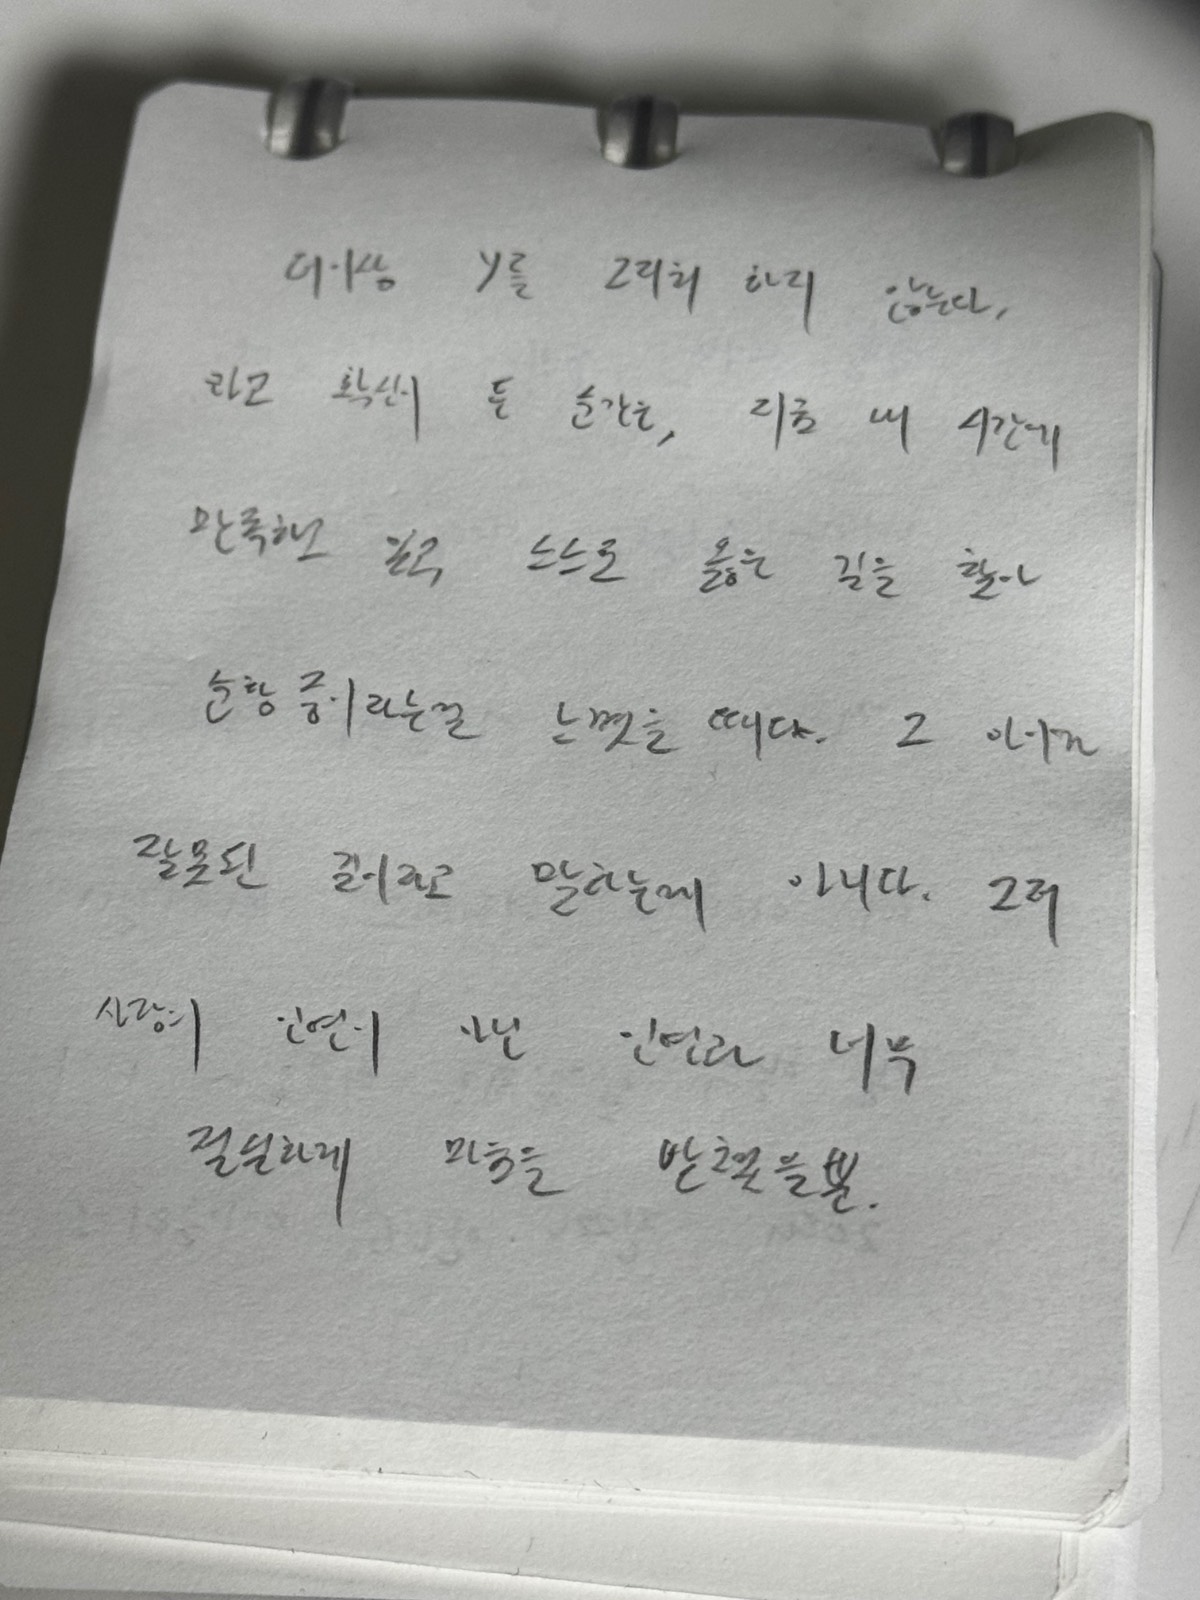 더이상 Y를 그리워 하지 않는다,
라고 확신이 든 순간은, 지금 내 시간에
만족하고 있고 스스로 옳은 길을 찾아
순항 중이라는걸 느꼈을 때다. 그
잘못된 길이라고 말하는게 아니다. 그저
사랑이 인연이 아닌 인연과 너무
절실하게 마음을 받쳤을뿐.